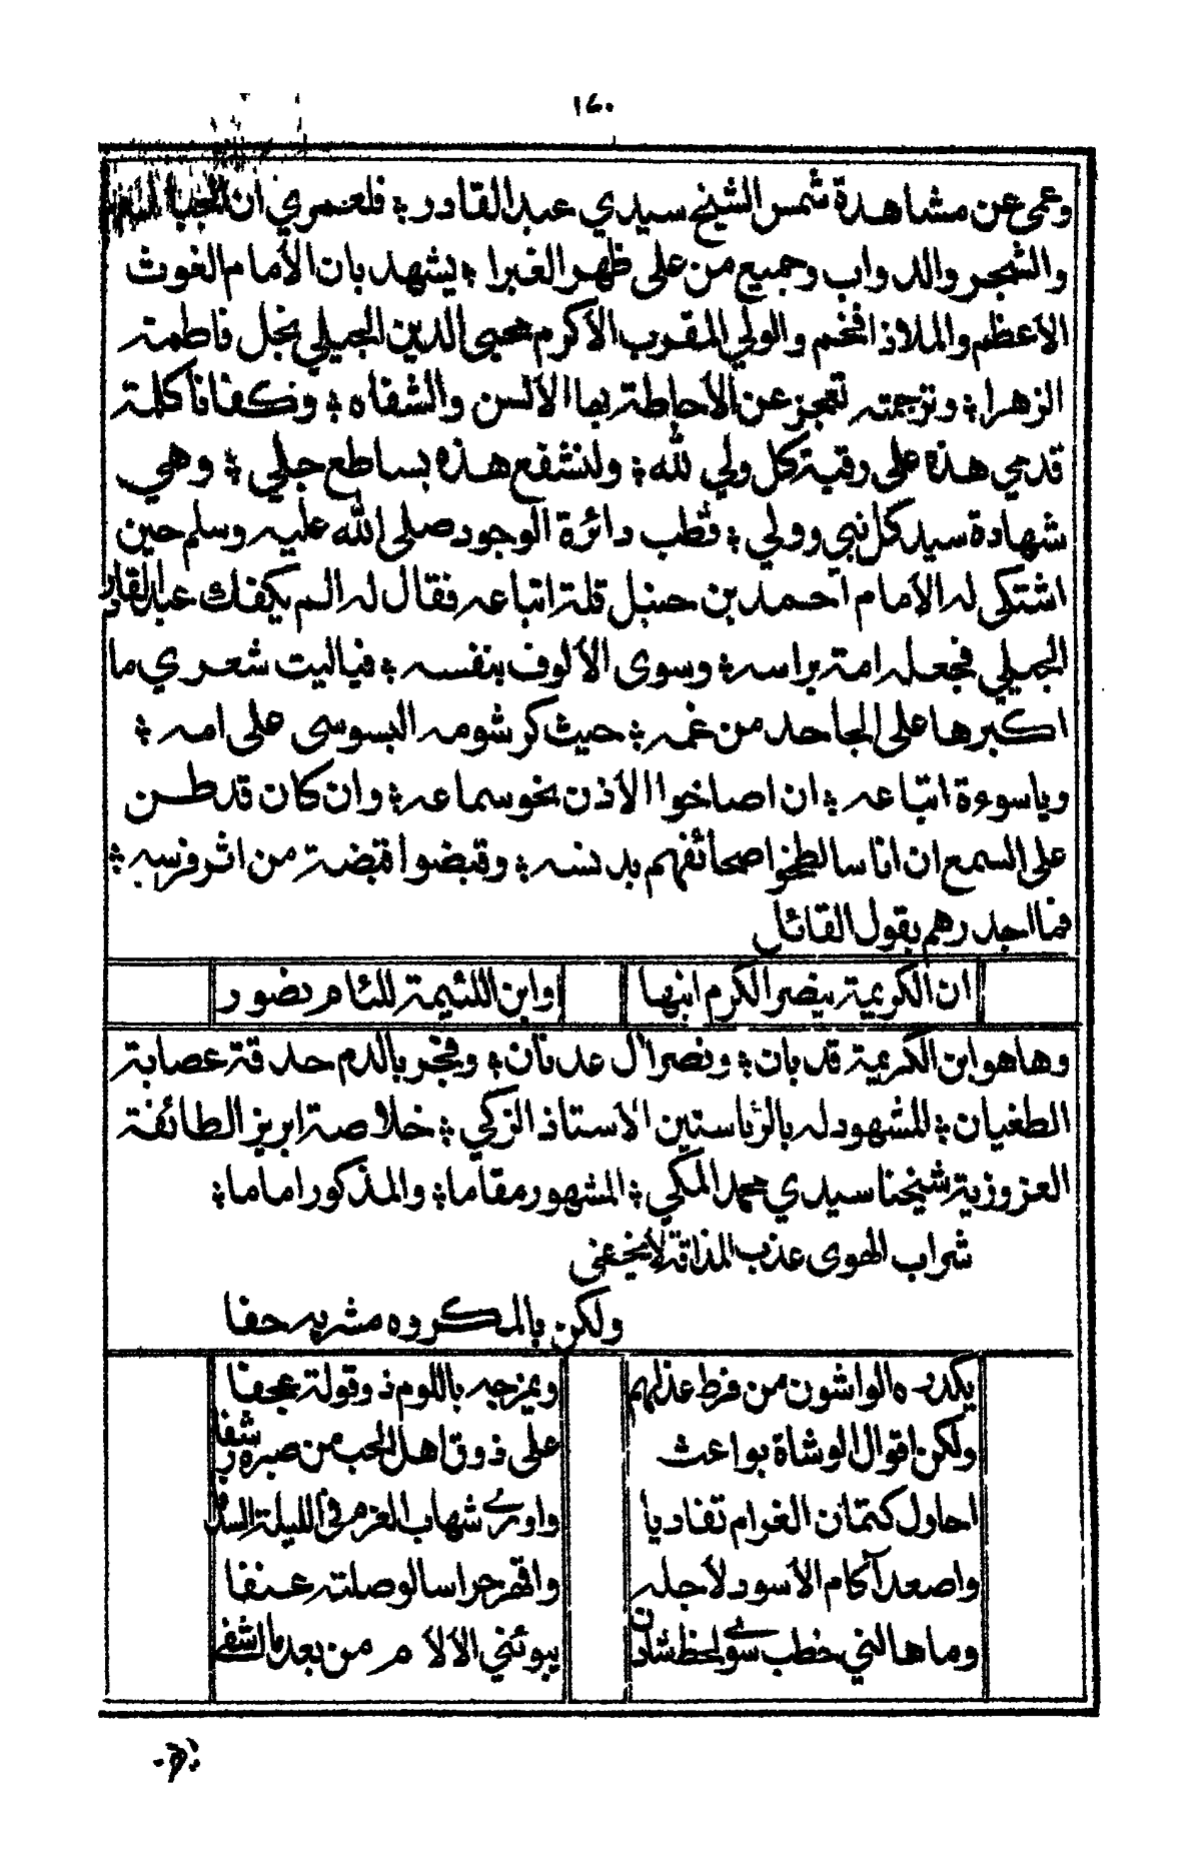 ١٤٠
وعمى عن مشاهدة شمس الشيخ سيدي عبد القادر ؛ فلعمري ان
والشجر والدواب وجميع من على ظهر الغبرا ؛ يشهد بان الأمام الغوث
الأعظم والملاذ افخم والولي المقرب الأكرم محيى الدين الجيلي نجل فاطمة
الزهرا ؛ وترجمته تعجز عن الأحاطة بها الألسن والشفاه ؛ وتكفانا كلمة
قدمي هذه على رقبة كل ولي لله ؛ ولنشفع هذه بساطع جلي ؛ وهي
شهادة سيد كل نبي وولي ؛ قطب دائرة الوجود صلى الله عليه وسلم حين
اشتكى له الأمام احمد بن حنبل قلة اتباعه فقال له الم يكفك عبد القادر
الجيلي فجعله امة براسه ؛ وسوى الألوف بنفسه ؛ فياليت شعري ما
اكبرها على الجاحد من غمه ؛ حيث كر شومه البسوسى على امه ؛
وياسوءة اتباعه ؛ ان اصاخوا الأذن نحو سماعه ؛ وان كان قد طن
على السمع ان اناسا لطخوا صحائفهم بدنسه ؛ وقبضوا قبضة من اثر فرسه ؛
فما اجدرهم بقول القائل
ان الكريمة ينصر الكرم ابنها وابن اللئيمة للئام نصور
وها هو ابن الكريمة قد بان ؛ ونصر ال عدنان ؛ وفجر بالدم حدقة عصابة
الطغيان ؛ للمشهود له بالرئاستين الأستاذ الزكي ؛ خلاصة ابريز الطائفة
العزوزية شيخنا سيدي محمد المكي ؛ المشهور مقاما ؛ والمذكور اماما ؛
شراب الهوى عذب المذاقة لا يخفى
ولكن بالمكروه مشربه حفا
يكدره الواشون من فرط عذلهم ويمزجه باللوم ذو قولة عجفا
ولكن اقوال الوشاة بواعث على ذوق اهل الحب من صبره رشفا
احاول كتمان الغرام تفاديا واورى شهاب العزم فى الليلة
واصعد آكام الأسود لأجله واقهر حراسا لوصلته عنفا
وما هالني خطب سوى لحظ شادن يبوئني الألام من بعد ما اشفى